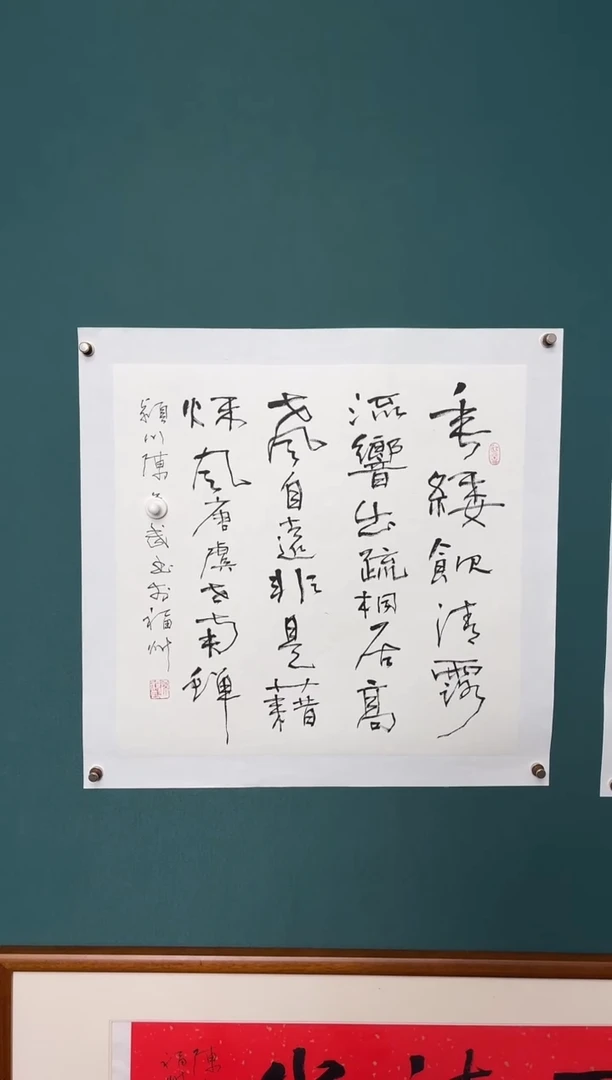 垂緌飲清露
流響出疏桐居高
聲自遠非是藉
秌風唐虞世南蟬
潁川陳武書於福州